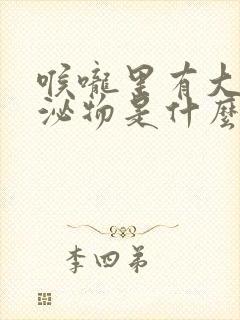 喉嚨里有大
泌物是什麼
李四弟